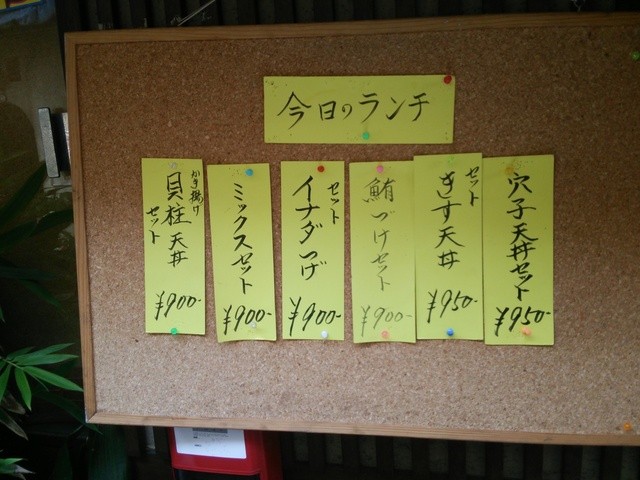 今日のランチ
穴子天丼セット
¥950-
きす天丼
セット
¥950-
鮪づけセット
¥900-
イナダづけ
セット
¥900-
ミックスセット
¥900-
かき揚げ
貝柱天丼
セット
¥900-